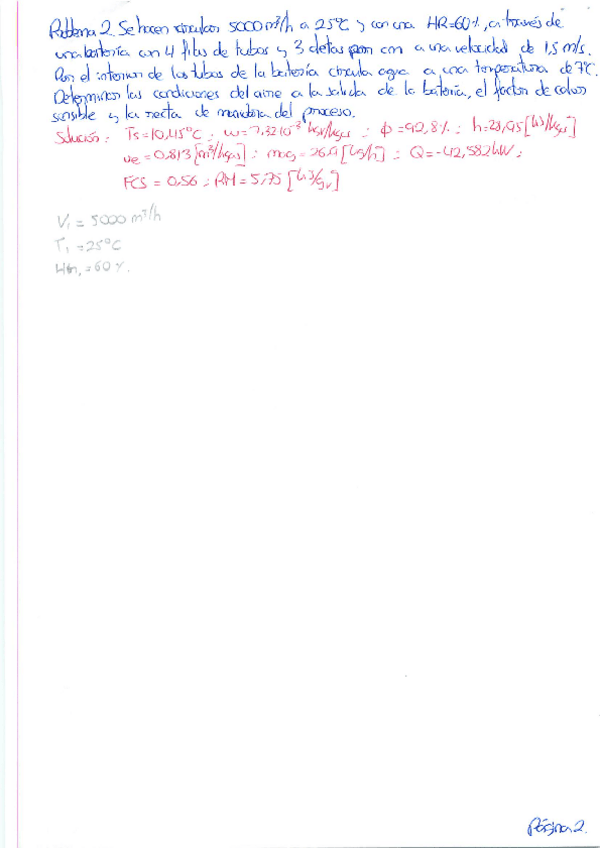 Problema 2. Se hacen circular 5000 m³/h a 25ºC y con una HR=60%, a través de
una batería con 4 filas de tubos y 3 aletas por cm a una velocidad de 1,5 m/s.
Por el interior de los tubos de la batería circula agua a una temperatura de 7ºC.
Determinar las condiciones del aire a la salida de la batería, el factor de calor
sensible y la recta de maniobra del proceso.
Solución: Ts=10,45ºC ; w=7,32 10⁻³ kgv/kgas ; Φ=92,8% ; h=28,95 [kJ/kgas]
ve=0,813 [m³/kgas] ; [kg/h] ; Q=-42,582 kW ;
FCS=0,56 ; RM=5,75 [kJ/gv]
V₁ = 5000 m³/h
T₁ = 25ºC
Hr₁ = 60%.
Página 2.